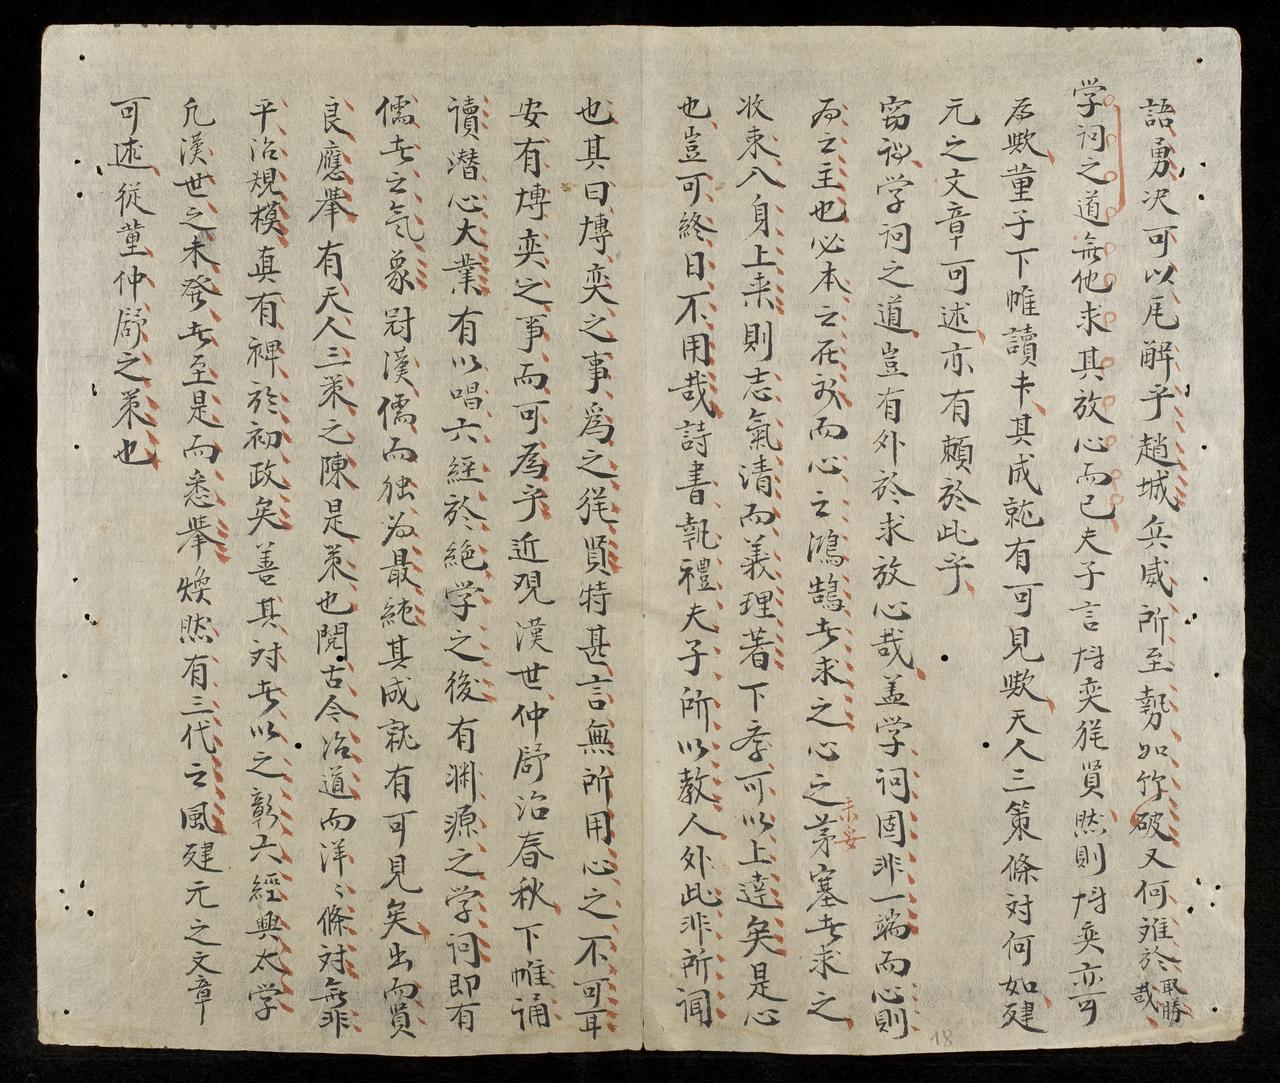 語勇决可以尾解乎趙城兵威所至勢如竹破又何难於取勝哉
学问之道無他求其放心而已夫子言博奕猶賢然則博奕亦可
為歟董子下帷讀书其成就有可見歟天人三策條对何如建
元之文章可述亦有頼於此乎
窃谓学问之道豈有外於求放心哉盖学问固非一端而心則
為之主也必本之在我而心之鴻鵠者求之心之茅塞者求之
未妥
收束入身上来則志氣清而義理著下学可以上達矣是心
也豈可終日不用哉詩書執禮夫子所以教人外此非所闻
也其曰博奕之事爲之猶賢特甚言無所用心之不可耳
安有博奕之事而可為乎近观漢世仲舒治春秋下帷诵
讀潜心大業有以唱六經於絶学之後有渊源之学问即有
儒者之氣象对漢儒而独为最純其成就有可見矣出而賢
良應舉有天人三策之陳是策也閱古今治道而洋〻條对無非
平治規模真有裨於初政矣善其对者以之彰六經興太学
凡漢世之未發者至是而悉舉焕然有三代之風建元之文章
可述從董仲舒之策也